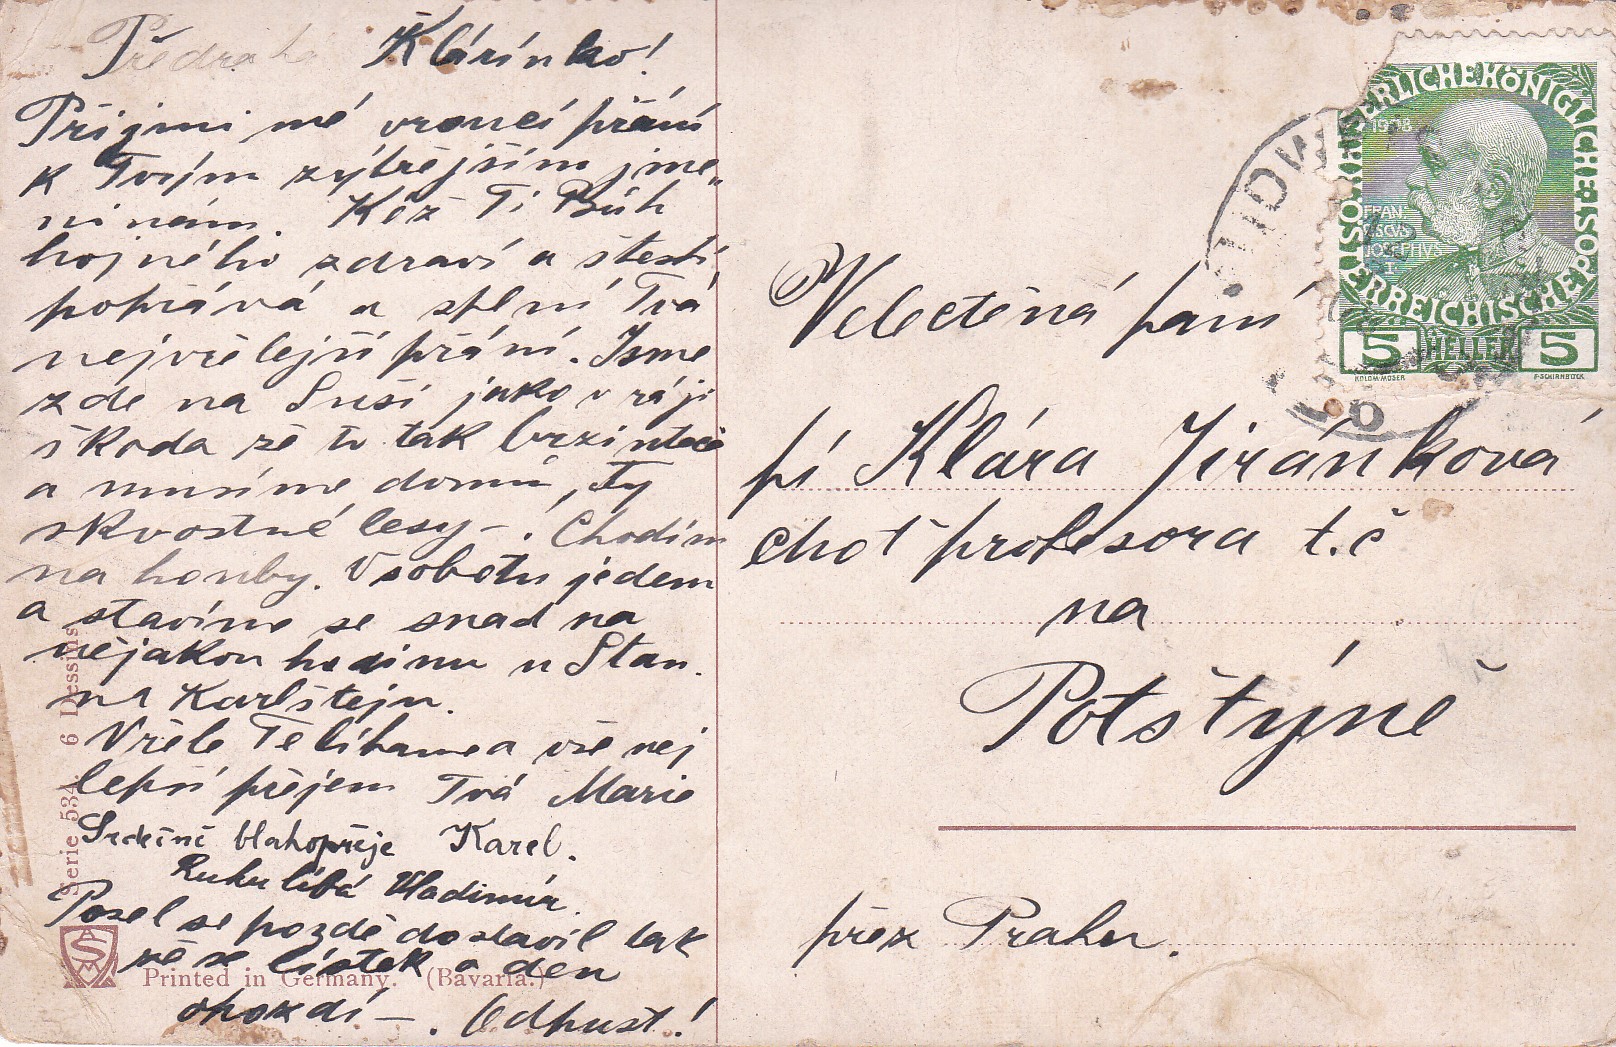 Předrahá Klárínko!
Přijmi mé vroucí přání
k Tvým zýtřejším jme„
ninám. Kéž Ti Bůh
hojného zdraví a štestí
popřává a splní Tvá
nejvřelejší přání. Jsme
zde na Suši jako v ráji
škoda že to tak brzi uteče
a musíme domů, Ty
skvostné lesy –! Chodím
na houby. V sobotu jedem
a stavíme se snad na
nějakou hodinu u Stan.
na Karlštejn.
Vřele Tě líbáme a vše nej
lepší přejem Tvá Marie
Srdečně blahopřeje Karel.
Ruku líbá Vladimír.
Posel se pozdě dostavil tak
že se lístek o den
opozdí –. Odpust!
Serie 534 6 Dessins
ASM
Printed in Germany. (Bavaria.)
KAISERLICHE KÖNIGLICHE ÖSTERREICHISCHE
1908
FRAN.
CISCVS
IOSEPHVS
I
5 HELLER 5
KOLOM. MOSER F. SCHIRNBÖCK
Velectěná paní
pí Klára Jiránková
choť profesora t.č
na
Potštýně
přez Prahu.